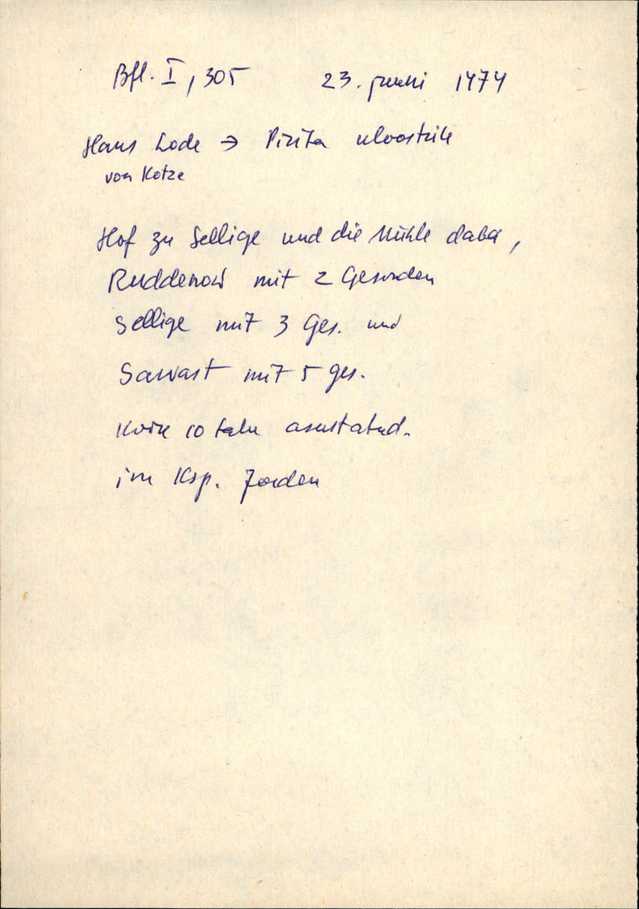 Bfl. I, 305 23. juuni 1474
Hans Lode → Pirita kloostrile
von Kotze
Hof zu Sellige und die Mühle dabei,
Ruddenow mit 2 Gesinden
Sellige mit 3 Ges. und
Sawast mit 5 ges.
Kõik 10 talu asustatud.
im Ksp. Jorden